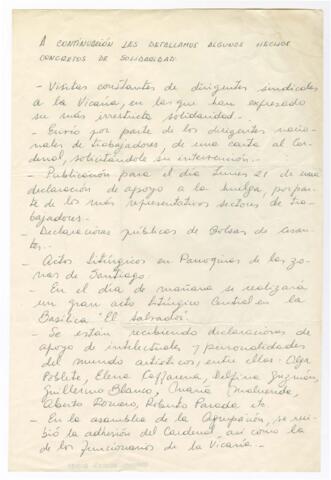 A CONTINUACIÓN LES DETALLAMOS ALGUNOS HECHOS
CONCRETOS DE SOLIDARIDAD:
- Visitas constantes de dirigentes sindicales
a la Vicaría, en las que han expresado
su más irrestricta solidaridad.-
- Envío por parte de los dirigentes nacio-
nales de trabajadores, de una carta al Car-
denal, solicitándole su intervención.-
- Publicación para el día lunes 21 de una
declaración de apoyo a la huelga, por par-
te de los más representativos sectores de tra-
bajadores.-
- Declaraciones públicas de Bolsas de cesan-
tes.-
- Actos Litúrgicos en Parroquias de las zo-
nas de Santiago.-
- En el día de mañana se realizará
un gran acto Litúrgico Central en la
Basílica "El Salvador".
- Se están recibiendo declaraciones de
apoyo de intelectuales y personalidades
del mundo artístico, entre ellos: Olga
Poblete, Elena Caffarena, Delfina Guzmán,
Guillermo Blanco, Maluenda,
Alberto Roberto Parada etc
- En la asamblea de la Agrupación, se reci-
bió la adhesión del Cardenal, así como la
de los funcionarios de la Vicaría.-